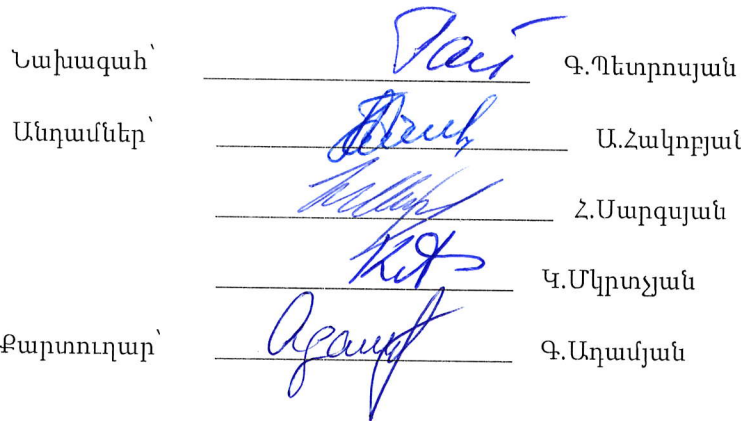 Նախագահ՝ Գ.Պետրոսյան
Անդամներ՝ Ա.Հակոբյան
Հ.Սարգսյան
Կ.Մկրտչյան
Քարտուղար՝ Գ.Ադամյան